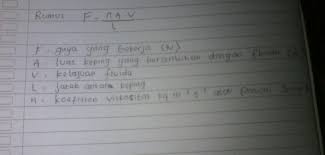 Rumus F = η A V
L
F = gaya yang bekerja (N)
A luas keping yang bersentuhan dengan fluida
V = kelajuan fluida
L = jarak antara keping
η = koefisien viskositas kg m⁻¹ s⁻¹ atau